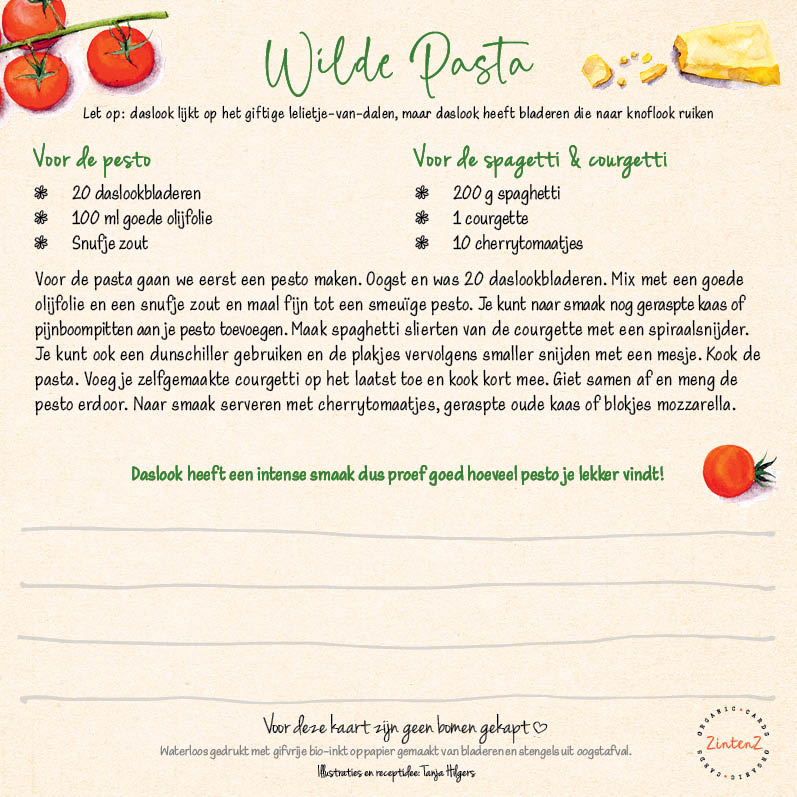 Wilde Pasta
Let op: daslook lijkt op het giftige lelietje-van-dalen, maar daslook heeft bladeren die naar knoflook ruiken
Voor de pesto
20 daslookbladeren
100 ml goede olijfolie
Snufje zout
Voor de spagetti & courgetti
200 g spaghetti
1 courgette
10 cherrytomaatjes
Voor de pasta gaan we eerst een pesto maken. Oogst en was 20 daslookbladeren. Mix met een goede
olijfolie en een snufje zout en maal fijn tot een smeuïge pesto. Je kunt naar smaak nog geraspte kaas of
pijnboompitten aan je pesto toevoegen. Maak spaghetti slierten van de courgette met een spiraalsnijder.
Je kunt ook een dunschiller gebruiken en de plakjes vervolgens smaller snijden met een mesje. Kook de
pasta. Voeg je zelfgemaakte courgetti op het laatst toe en kook kort mee. Giet samen af en meng de
pesto erdoor. Naar smaak serveren met cherrytomaatjes, geraspte oude kaas of blokjes mozzarella.
Daslook heeft een intense smaak dus proef goed hoeveel pesto je lekker vindt!
Voor deze kaart zijn geen bomen gekapt
Waterloos gedrukt met gifvrije bio-inkt op papier gemaakt van bladeren en stengels uit oogstafval.
Illustraties en receptidee: Tanja Hilgers
ORGANIC • CARDS
ZintenZ
ORGANIC • CARDS